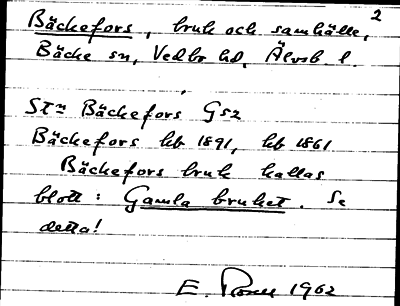 2
Bäckefors, bruk och samhälle,
Bäcke sn, Vedbo hd, Älvsb. l.
Stn Bäckefors G52
Bäckefors hb 1891, hb 1861
Bäckefors bruk kallas
blott: Gamla bruket. Se
detta!
E. Rosell 1962